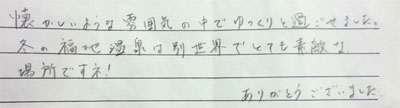 懐かしいような雰囲気の中でゆっくりと過ごせました。
冬の福地温泉は別世界でとても素敵な
場所ですネ!
ありがとうございました。